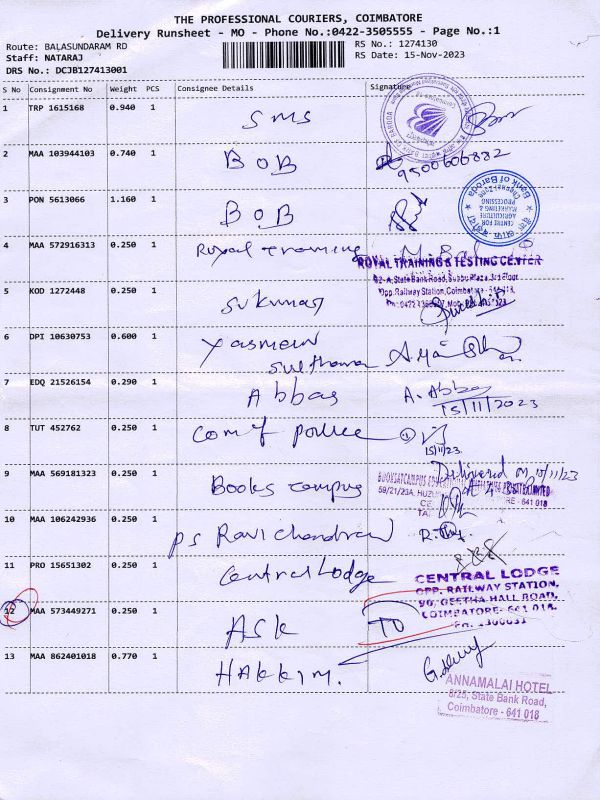 THE PROFESSIONAL COURIERS, COIMBATORE
Delivery Runsheet - MO - Phone No.:0422-3505555 - Page No.:1
Route: BALASUNDARAM RD
Staff: NATARAJ
DRS No.: DCJB127413001
RS No.: 1274130
RS Date: 15-Nov-2023
S No Consignment No Weight PCS Consignee Details Signature
1 TRP 1615168 0.940 1 SMS
2 MAA 103944103 0.740 1 BOB 9500606882
3 PON 5613066 1.160 1 BOB
Bank of Baroda
CENTRE FOR
AGRICULTURE
MARKETING &
PROCESSING
4 MAA 572916313 0.250 1 Royal training
ROYAL TRAINING & TESTING CENTER
92-A, State Bank Road, Subbu Plaza, 3rd Floor
Opp. Railway Station, Coimbatore
5 KOD 1272448 0.250 1 Sukumar
6 DPI 10630753 0.600 1 Yasmein
Sulthana
7 EDQ 21526154 0.290 1 Abbas A. Abbas
15/11/2023
8 TUT 452762 0.250 1 Com of police
15/11/23.
9 MAA 569181323 0.250 1 Books campus Delivered on 15/11/23
LIMITED
59/21/23A, - 641 018
10 MAA 106242936 0.250 1 PS Ravichandran
11 PRO 15651302 0.250 1 Central Lodge
CENTRAL LODGE
OPP. RAILWAY STATION,
90, GEETHA HALL ROAD,
COIMBATORE- 641 018.
12 MAA 573449271 0.250 1 ASK TO
13 MAA 862401018 0.770 1 HAKKIM.
ANNAMALAI HOTEL
8/25, State Bank Road,
Coimbatore - 641 018